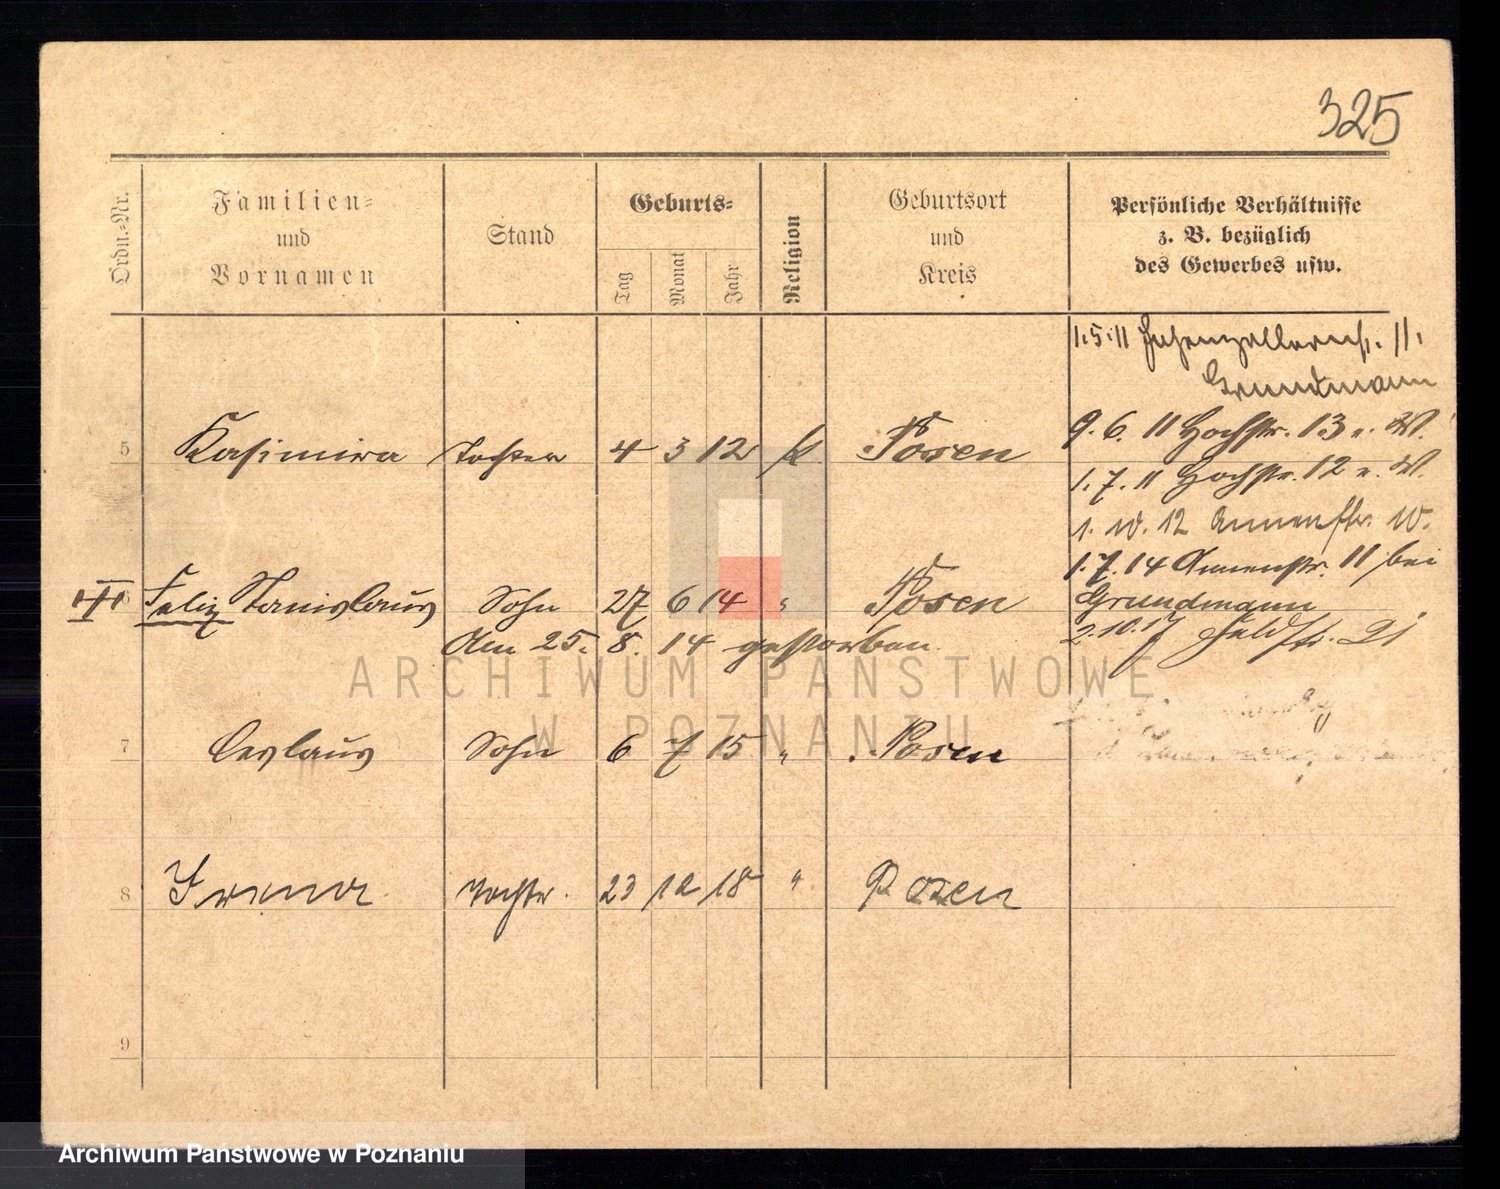 325
Ordn.-Nr.
Familien-
und
Vornamen
Stand
Geburts-
Tag
Monat
Jahr
Religion
Geburtsort
und
Kreis
Persönliche Verhältnisse
z. B. bezüglich
des Gewerbes usw.
1.5.11 Hohenzollernstr. 11.
Grundmann
5 Kasimira Tochter 4 3 12 k Posen
9. 6. 11 Hochstr. 13 W.
1. 7. 11 Hochstr. 12 W.
1. 10. 12 Annenstr. 10.
1.7.14 Annenstr. 11 bei
Grundmann
2.10.17 Feldstr. 21
6 Felix Stanislaus Sohn 27 6 14 " Posen
Am 25. 8. 14 gestorben.
7 Ceslaus Sohn 6 7 15 " Posen
8 Irena Tochter. 23 10 18 " Posen
9
ARCHIWUM PAŃSTWOWE
W POZNANIU
Archiwum Państwowe w Poznaniu